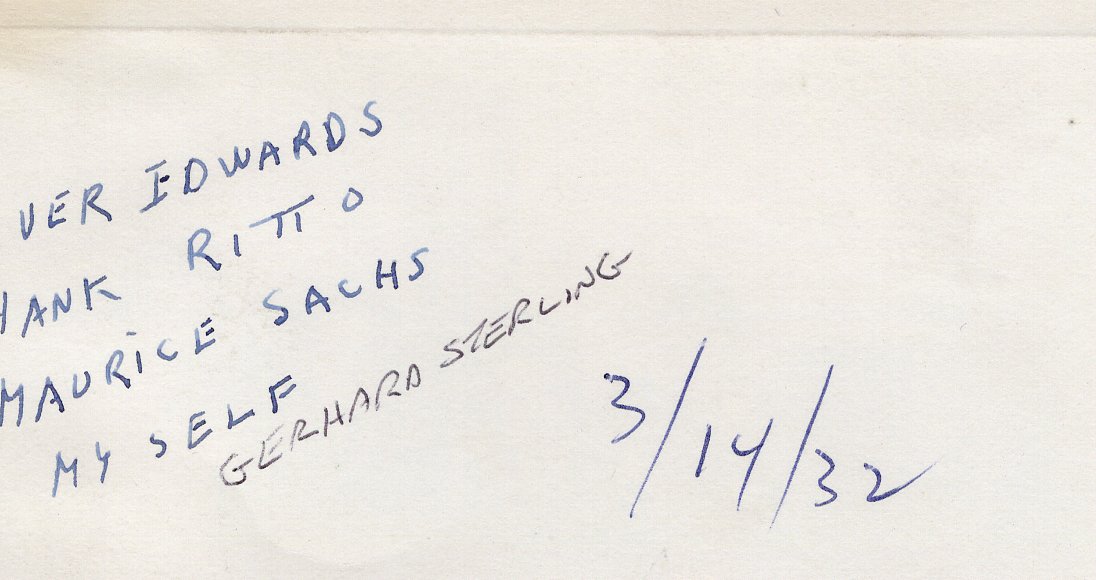 VER EDWARDS
HANK RITTO
MAURICE SACHS
MY SELF
GERHARD STERLING
3/14/32